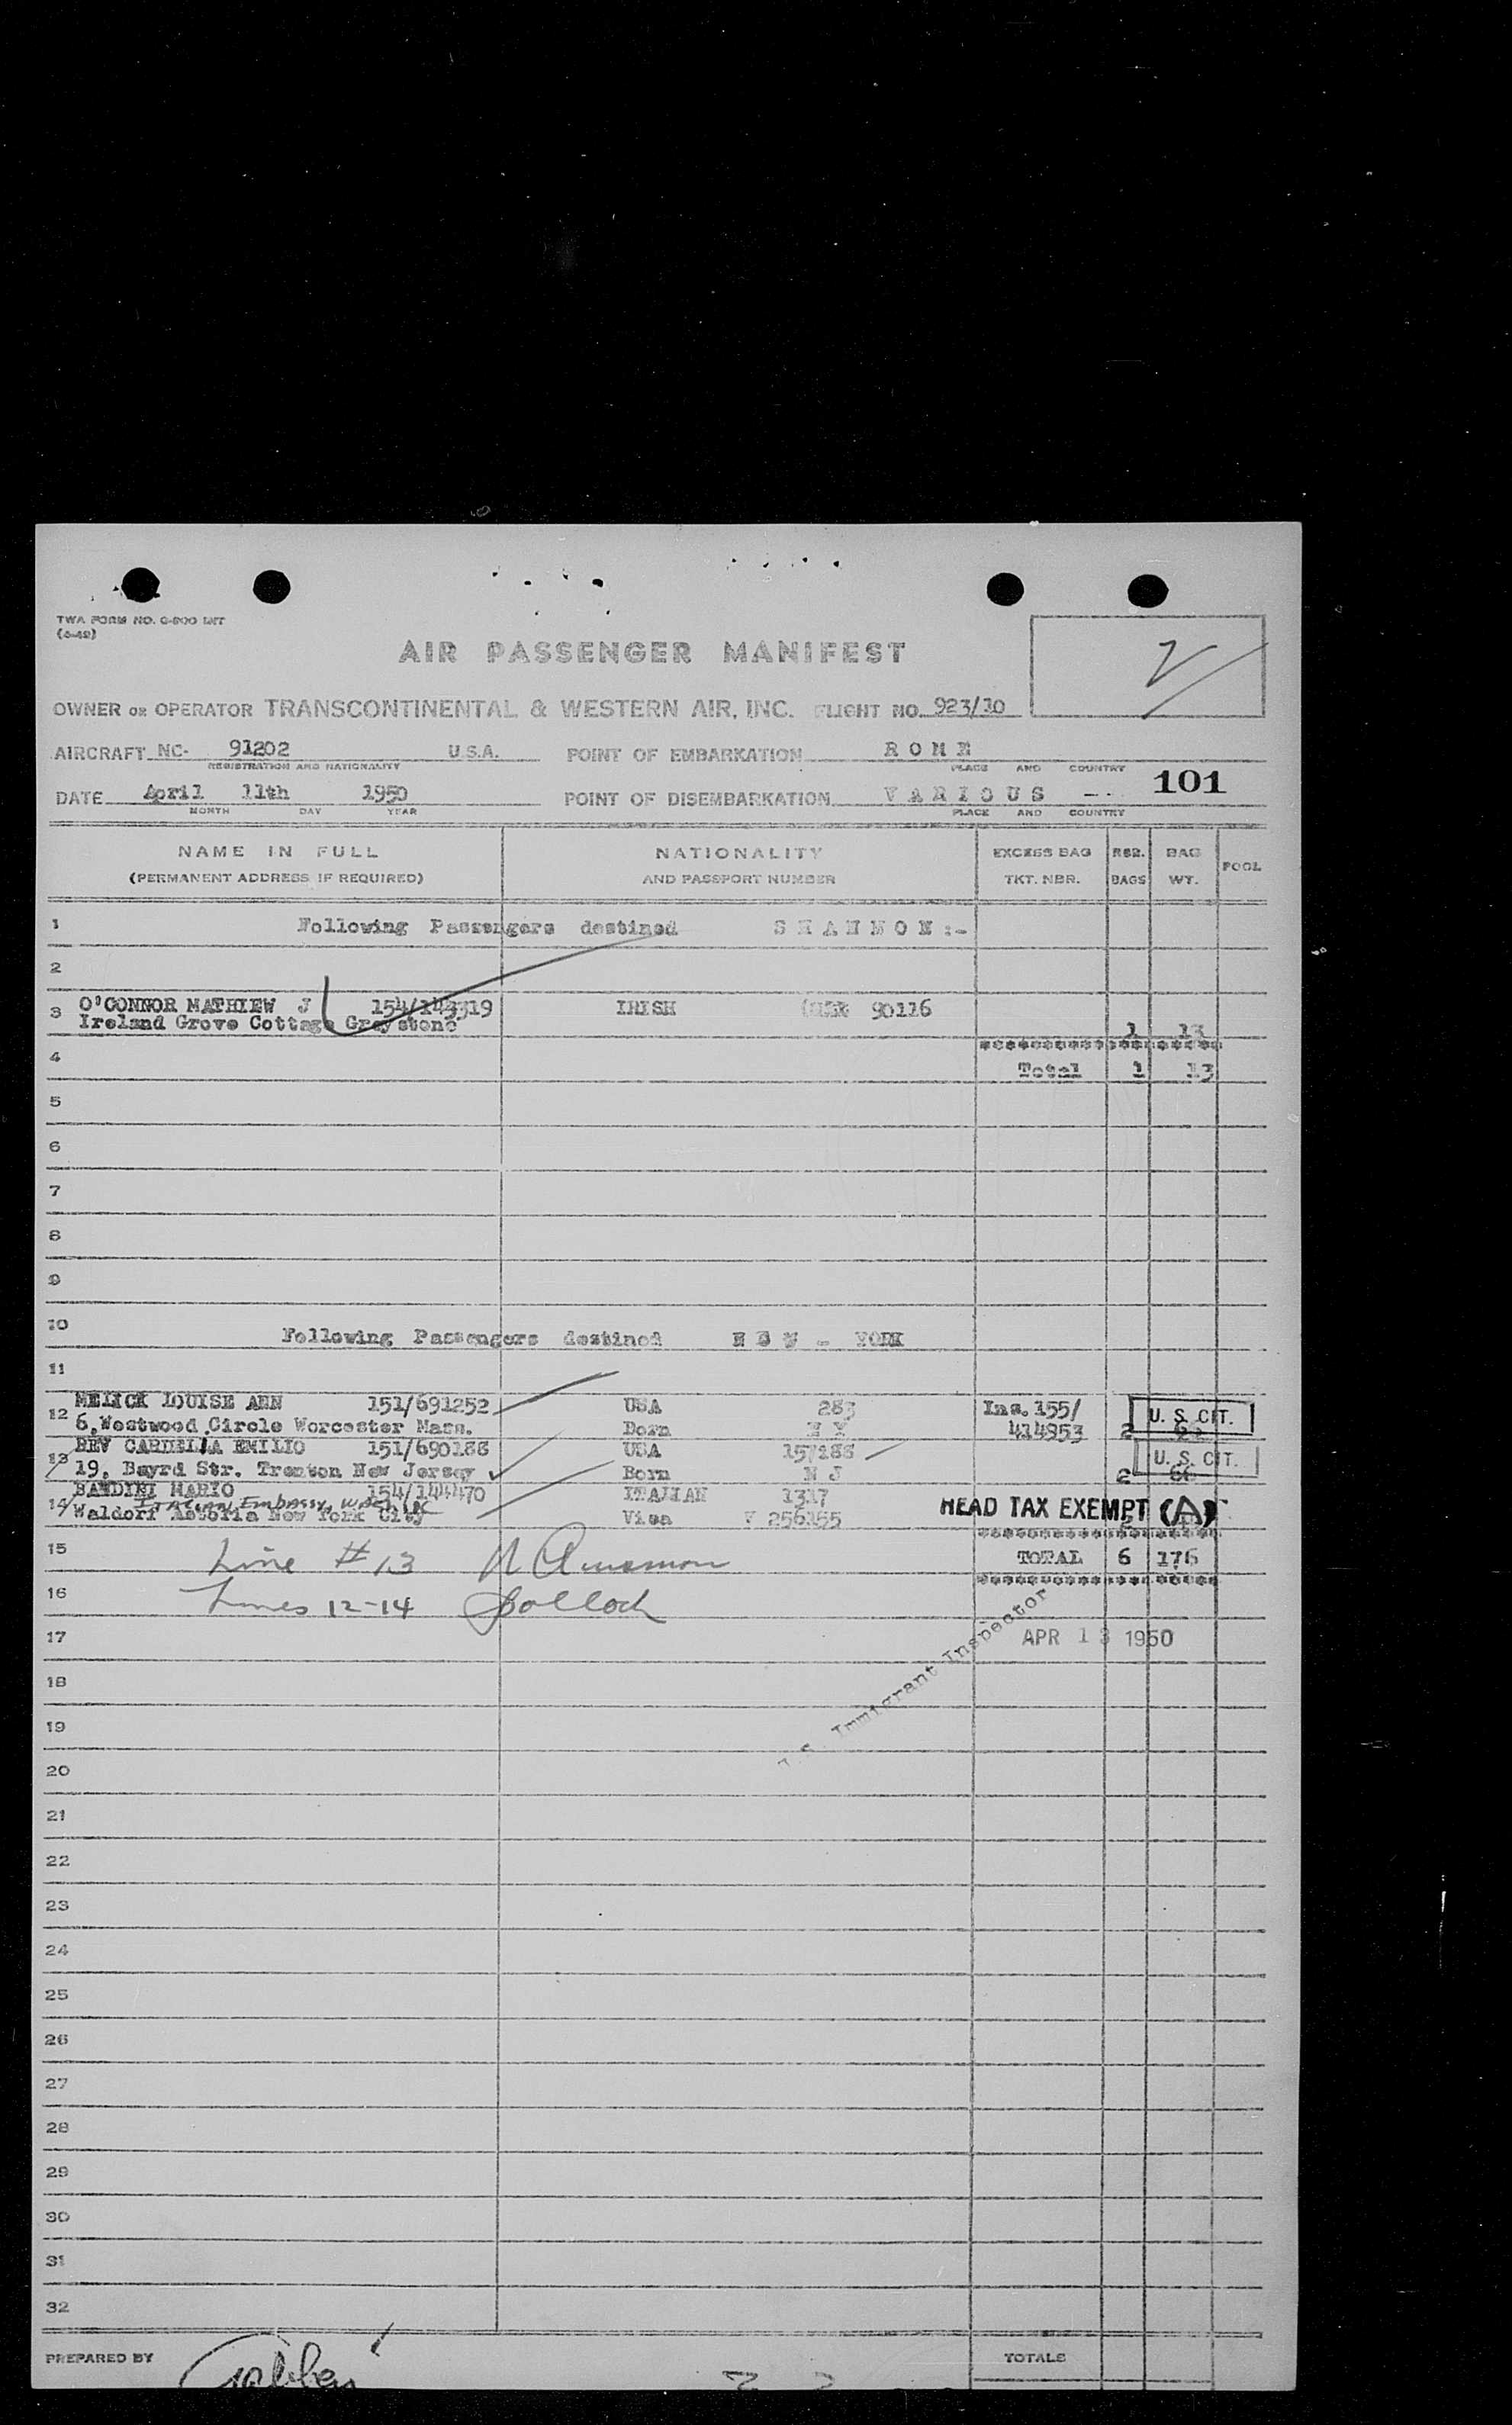 TWA FORM NO. O-800 INT
(6-49)
AIR PASSENGER MANIFEST
OWNER OR OPERATOR TRANSCONTINENTAL & WESTERN AIR, INC. FLIGHT NO. 923/10
AIRCRAFT NC- 91202 U.S.A. POINT OF EMBARKATION R O M E
REGISTRATION AND NATIONALITY PLACE AND COUNTRY
101
DATE April 11th 1950 POINT OF DISEMBARKATION V A R I O U S
MONTH DAY YEAR PLACE AND COUNTRY
NAME IN FULL NATIONALITY EXCESS BAG NBR. BAG POOL
(PERMANENT ADDRESS IF REQUIRED) AND PASSPORT NUMBER TKT. NBR. BAGS WT.
1 Following Passengers destined S H A N N O N :-
2
3 O'CONNOR MATHIEW J 154/143319 IRISH 90116
Ireland Grove Cottage Greystone 1 13
4 Total 1 13
5
6
7
8
9
10 Following Passengers destined N E W - YORK
11
12 MELICK LOUISE ANN 151/691252 USA 283 Ins. 155/ U. S. CIT.
6, Westwood Circle Worcester Mass. Born N Y 414953 2
13 REV CARDELIA EMILIO 151/690188 USA 157188 U. S. CIT.
19, Bayrd Str. Trenton New Jersey Born N J 2
14 BANDINI MARIO 154/144470 ITALIAN 1317 HEAD TAX EXEMPT (A)
ITALIAN EMBASSY, WASH DC
Waldorf Astoria New York City Visa V 256155
15 Line # 13 TOTAL 6 176
16 Lines 12-14 Pollock
17 APR 13 1950
U.S. Immigrant Inspector
18
19
20
21
22
23
24
25
26
27
28
29
30
31
32
PREPARED BY TOTALS